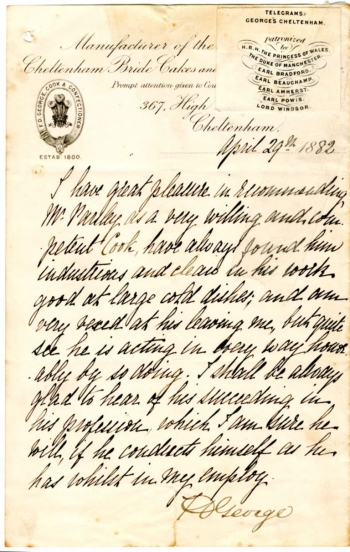 TELEGRAMS:
GEORGE'S CHELTENHAM.
patronized
by
H.R.H. THE PRINCESS OF WALES,
THE DUKE OF MANCHESTER,
EARL BRADFORD,
EARL BEAUCHAMP,
EARL AMHERST,
EARL POWIS,
LORD WINDSOR.
Manufacturer of the
Cheltenham Bride Cakes and
Prompt attention given to Cou
367, High
Cheltenham.
GEORGE, COOK & CONFECTIONER
ESTAB 1800.
April 29th 1882
I have great pleasure in recommending
Mr Parsley as a very willing and com
petent Cook, have always found him
industrious and clean in his work
good at large cold dishes, and am
very vexed at his leaving me, but quite
see he is acting in every way honor
ably by so doing. I shall be always
glad to hear of his succeeding in
his profession, which I am sure he
will, if he conducts himself as he
has whilst in my employ.
George